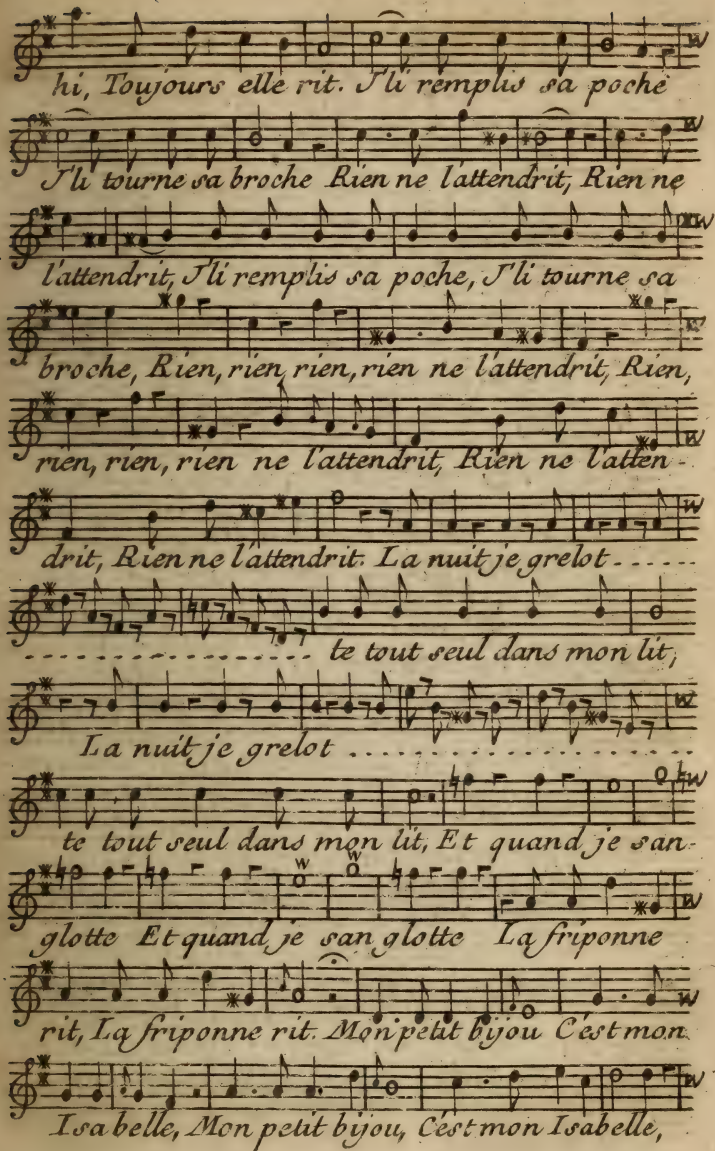 hi, Toujours elle rit. J'li remplis sa poche
J'li tourne sa broche Rien ne l'attendrit, Rien ne
l'attendrit, J'li remplis sa poche, J'li tourne sa
broche, Rien, rien, rien, rien ne l'attendrit, Rien,
rien, rien, rien ne l'attendrit, Rien ne l'atten-
drit, Rien ne l'attendrit. La nuit je grelot......
................... te tout seul dans mon lit,
La nuit je grelot ......................
te tout seul dans mon lit, Et quand je san-
glotte Et quand je sanglotte La friponne
rit, La friponne rit. Mon petit bijou C'est mon
Isabelle, Mon petit bijou, C'est mon Isabelle,